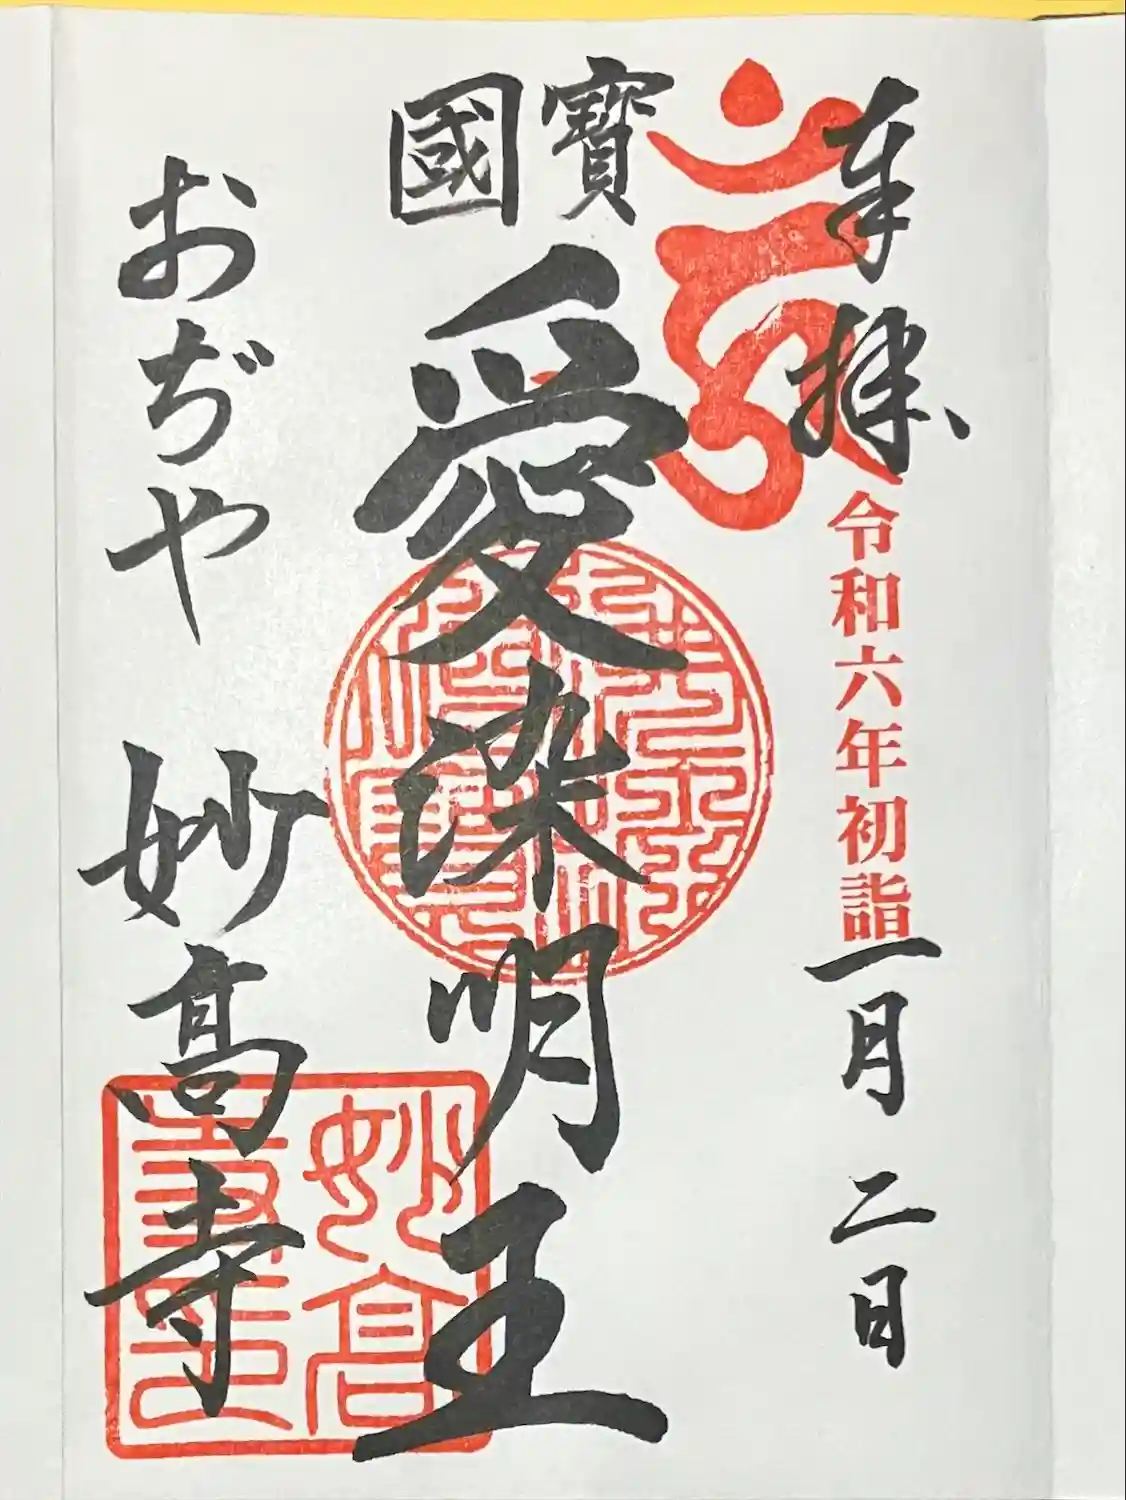 奉拝
令和六年初詣
一月二日
國寶
愛染明王
おぢや 妙高寺
妙高寺印